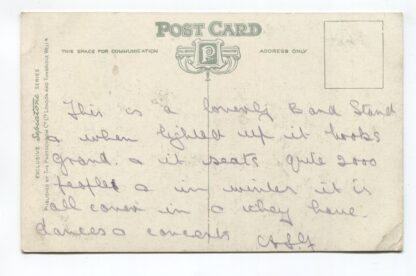 POST CARD
THIS SPACE FOR COMMUNICATION
ADDRESS ONLY
P
EXCLUSIVE Sepiatone SERIES
PUBLISHED BY THE PHOTOCHROM CO LTD LONDON AND TUNBRIDGE WELLS
This is a Band Stand
& when lighted up it looks
grand. & it seats quite 2000
people & in winter it is
all cover in & they have
dances & concerts